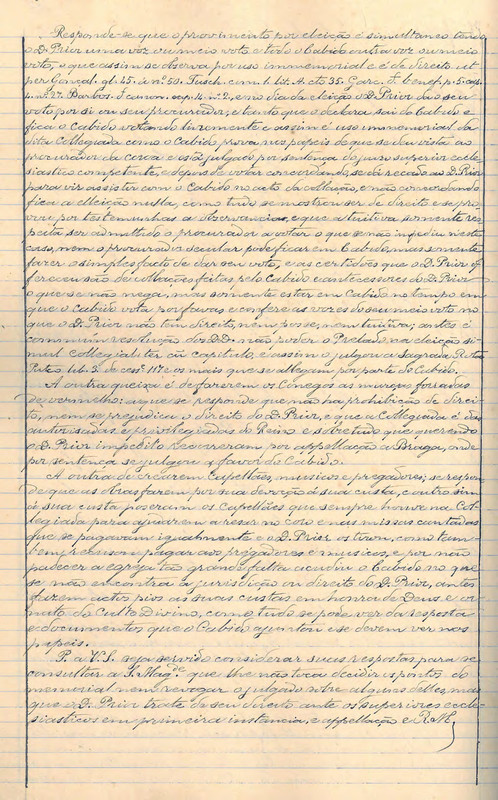 Responde-se que o provimento por eleição é simultaneo tendo
o D. Prior uma voz ou meio voto e todo o Cabido outra voz ou meio
voto, e que assim se observa por uso immemorial e é de direito ut
per Gonçal. gl. 45. § nº 50. Tusch. cum. l. lit. A. cto 35. Garc. f. benef. p. 5. cap.
4. nº 27. Barbos. J. canon. cap. 14. nº 2, e no dia da eleição o D. Prior dá o seu
voto por si ou seu procurador, e tanto que o declara sai do Cabido e
fica o Cabido votando livremente e assim é uso immemorial da
dita Collegiada como o Cabido prova nos papeis de que se deu vista ao
procurador da coroa e está julgado por sentença do juiso superior eccle-
siastico competente, e depois de votar concordando, se dá recado ao D. Prior
para vir assistir com o Cabido no acto da collação, e não concordando
fica a eleição nulla, como tudo se mostrou ser de direito e se pro-
vou por testemunhas a observancia, e que a tuitiva somente res-
peita ser admittido o procurador a votar o que se não impediu neste
caso, nem o procurador secular pode ficar em Cabido, mas somente
fazer o simples facto de dar seu voto, e as certidões que o D. Prior of-
ferece são de collações feitas pelo Cabido e antecessores do D. Prior
o que se não nega, mas somente estar em Cabido no tempo em
que o Cabido vota por favas e confere as vozes do seu meio voto no
que o D. Prior não tem direito, nem posse, nem tuitiva; antes é
commum resolução dos DD. não poder o Prelado na eleição si-
mul collegialiter cũ capitulo, e assim o julgou a Sagrada Rota
Part. lib. 3. dec. 1172 e os mais que se allegam por parte do Cabido.
A outra queixa é de fazerem os Conegos as murças forradas
de vermelho: a que se responde que não ha prohibição de direi-
to, nem se prejudica o direito do D. Prior, e que a Collegiada é das
authorisadas e privilegiadas do Reino e sobretudo que querendo
o D. Prior impedilo recorreram por appellação a Braga, onde
por sentença se julgou a favor do Cabido.
A outra de crearem Capellães, musicos e pregadores; se respon-
de que as obras fazem por sua devoção á sua custa, e outro sim
á sua custa poseram os capellães que sempre houve na Col-
legiada para ajudarem a resar no coro e nas missas cantadas
que se pagavam igualmente e o D. Prior os tirou, como tam-
bem recusou pagar aos pregadores e musicos, e por não
padecer a egreja tão grande falta acudiu o Cabido no que
se não encontra a jurisdicção ou direito do D. Prior, antes
fazem actos pios as suas custas em honra de Deus e or-
nato do Culto Divino, como tudo se pode ver da resposta
e documentos que o Cabido ajuntou e se devem ver nos
papeis.
P. a V. S. seja servido considerar suas respostas para se
consultar a S. Magde. que lhe não toca decidir os pontos do
memorial nem revogar o julgado sobre alguns delles, mas
que o D. Prior trate do seu direito ante os superiores eccle-
siasticos em primeira instancia, e appellação e R. M.